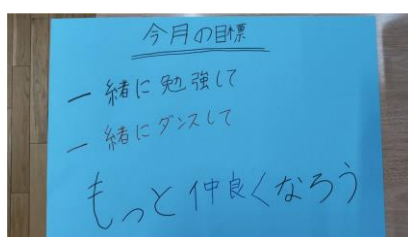 今月の目標
一緒に勉強して
一緒にダンスして
もっと仲良くなろう